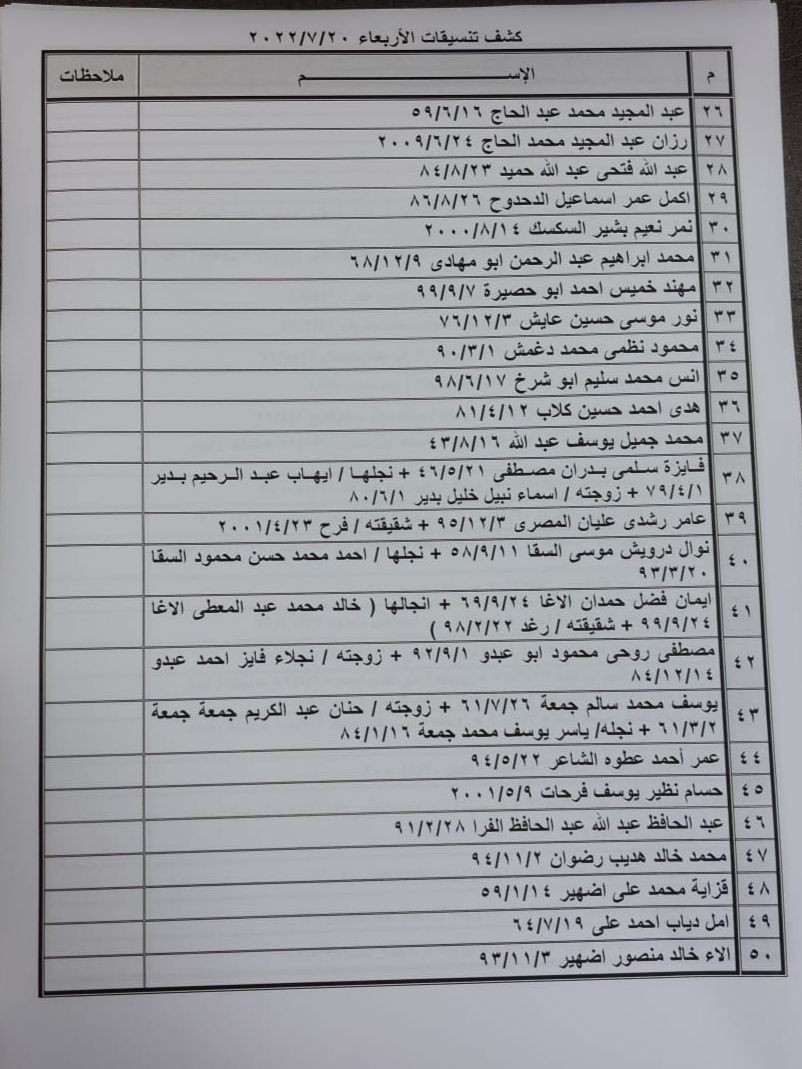 كشف تنسيقات الأربعاء ٢٠٢٢/٧/٢٠
م الإســـــــــم ملاحظات
٢٦ عبد المجيد محمد عبد الحاج ٥٩/٦/١٦
٢٧ رزان عبد المجيد محمد الحاج ٢٠٠٩/٦/٢٤
٢٨ عبد الله فتحى عبد الله حميد ٨٤/٨/٢٣
٢٩ اكمل عمر اسماعيل الدحدوح ٨٦/٨/٢٦
٣٠ نمر نعيم بشير السكسك ٢٠٠٠/٨/١٤
٣١ محمد ابراهيم عبد الرحمن ابو مهادى ٦٨/١٢/٩
٣٢ مهند خميس احمد ابو حصيرة ٩٩/٩/٧
٣٣ نور موسى حسين عايش ٧٦/١٢/٣
٣٤ محمود نظمى محمد دغمش ٩٠/٣/١
٣٥ انس محمد سليم ابو شرخ ٩٨/٦/١٧
٣٦ هدى احمد حسين كلاب ٨١/٤/١٢
٣٧ محمد جميل يوسف عبد الله ٤٣/٨/١٦
٣٨ فايزة سلمى بدران مصطفى ٤٦/٥/٢١ + نجلها / ايهاب عبد الرحيم بدير
٧٩/٤/١ + زوجته / اسماء نبيل خليل بدير ٨٠/٦/١
٣٩ عامر رشدى عليان المصرى ٩٥/١٢/٣ + شقيقته / فرح ٢٠٠١/٤/٢٣
٤٠ نوال درويش موسى السقا ٥٨/٩/١١ + نجلها / احمد محمد حسن محمود السقا
٩٣/٣/٢٠
٤١ ايمان فضل حمدان الاغا ٦٩/٩/٢٤ + انجالها ( خالد محمد عبد المعطى الاغا
٩٩/٩/٢٤ + شقيقته / رغد ٩٨/٢/٢٢ )
٤٢ مصطفى روحى محمود ابو عبدو ٩٢/٩/١ + زوجته / نجلاء فايز احمد عبدو
٨٤/١٢/١٤
٤٣ يوسف محمد سالم جمعة ٦١/٧/٢٦ + زوجته / حنان عبد الكريم جمعة جمعة
٦١/٣/٢ + نجله/ ياسر يوسف محمد جمعة ٨٤/١/١٦
٤٤ عمر أحمد عطوه الشاعر ٩٤/٥/٢٢
٤٥ حسام نظير يوسف فرحات ٢٠٠١/٥/٩
٤٦ عبد الحافظ عبد الله عبد الحافظ الفرا ٩١/٢/٢٨
٤٧ محمد خالد هديب رضوان ٩٤/١١/٢
٤٨ قزاية محمد على اضهير ٥٩/١/١٤
٤٩ امل دياب احمد على ٦٤/٧/١٩
٥٠ الاء خالد منصور اضهير ٩٣/١١/٣